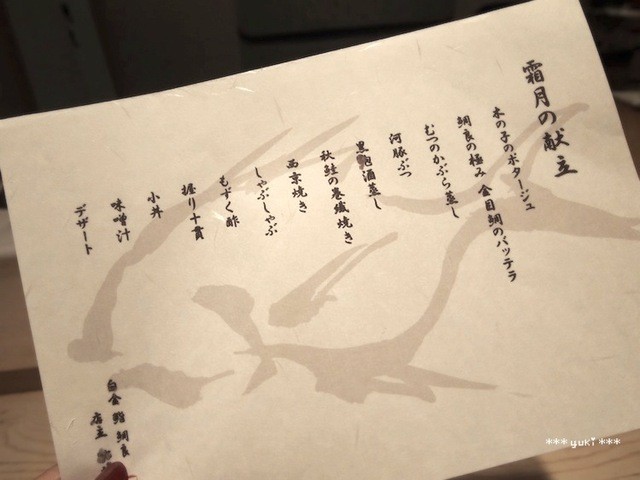 霜月の献立
木の子のポタージュ
鯛良の極み 金目鯛のバッテラ
むつのかぶら蒸し
河豚ぶつ
黒鮑酒蒸し
秋鮭の巻繊焼き
西京焼き
しゃぶしゃぶ
もずく酢
握り十貫
小丼
味噌汁
デザート
白金 鮨 鯛良
店主
***yuki***